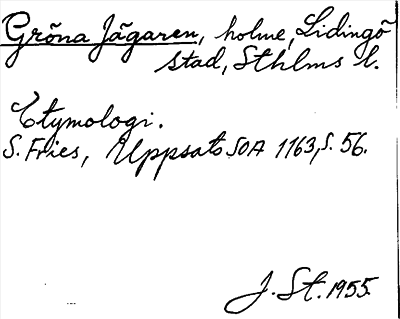 Gröna Jägaren, holme, Lidingö
stad, Sthlms l.
Etymologi.
S. Fries, Uppsats SOA 1163, s. 56.
J. St. 1955.